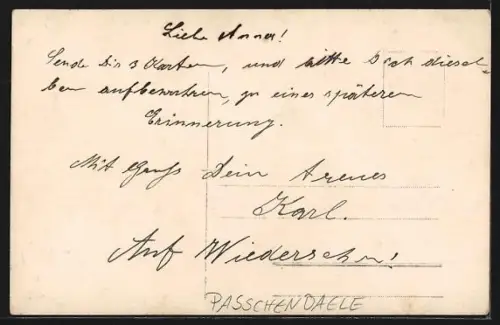 Liebe Anna!
Sende Dir 3 Karten, und bitte Dich diesel-
ben aufbewahren, zu eines späteren
Erinnerung.
Mit Gruß Dein treues
Karl.
Auf Wiedersehn!
PASSCHENDAELE